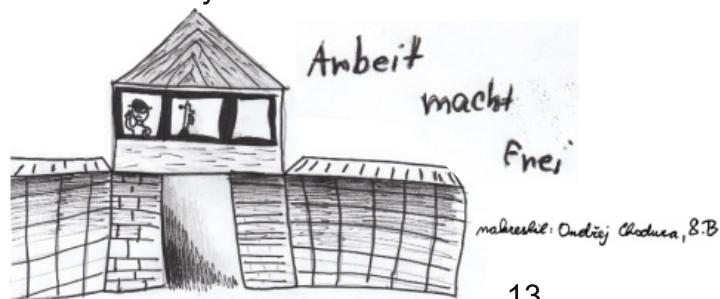 Arbeit
macht
Frei
nakreslil: Ondřej Chodura, 8.B
13